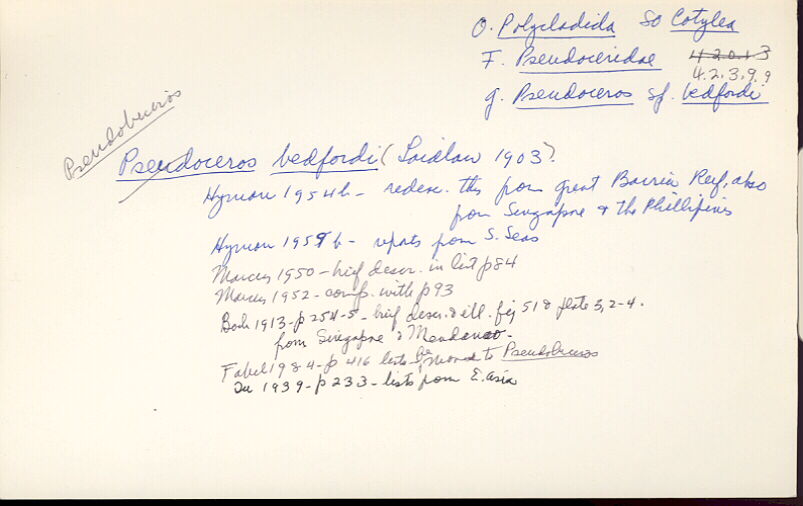 O. Polycladida SO Cotylea
F. Pseudoceridae 42013
4.2.3.9.9
g. Pseudoceros sp. bedfordi
Pseudobiceros
Pseudoceros bedfordi (Laidlaw 1903).
Hyman 1954b - redesc. this from great Barrier Reef, also
from Singapore & the Phillipines
Hyman 1959b - reports from S. Seas
Marcus 1950 - brief descr. in list p84
Marcus 1952 - comp. with p93
Bock 1913 - p 254-5 - brief descr. & ill. fig 51 & plate 3, 2-4.
from Singapore & Mandanao -
Faubel 1984 - p 416 lists be moved to Pseudobiceros
1939 - p 233 - lists from E. Asia